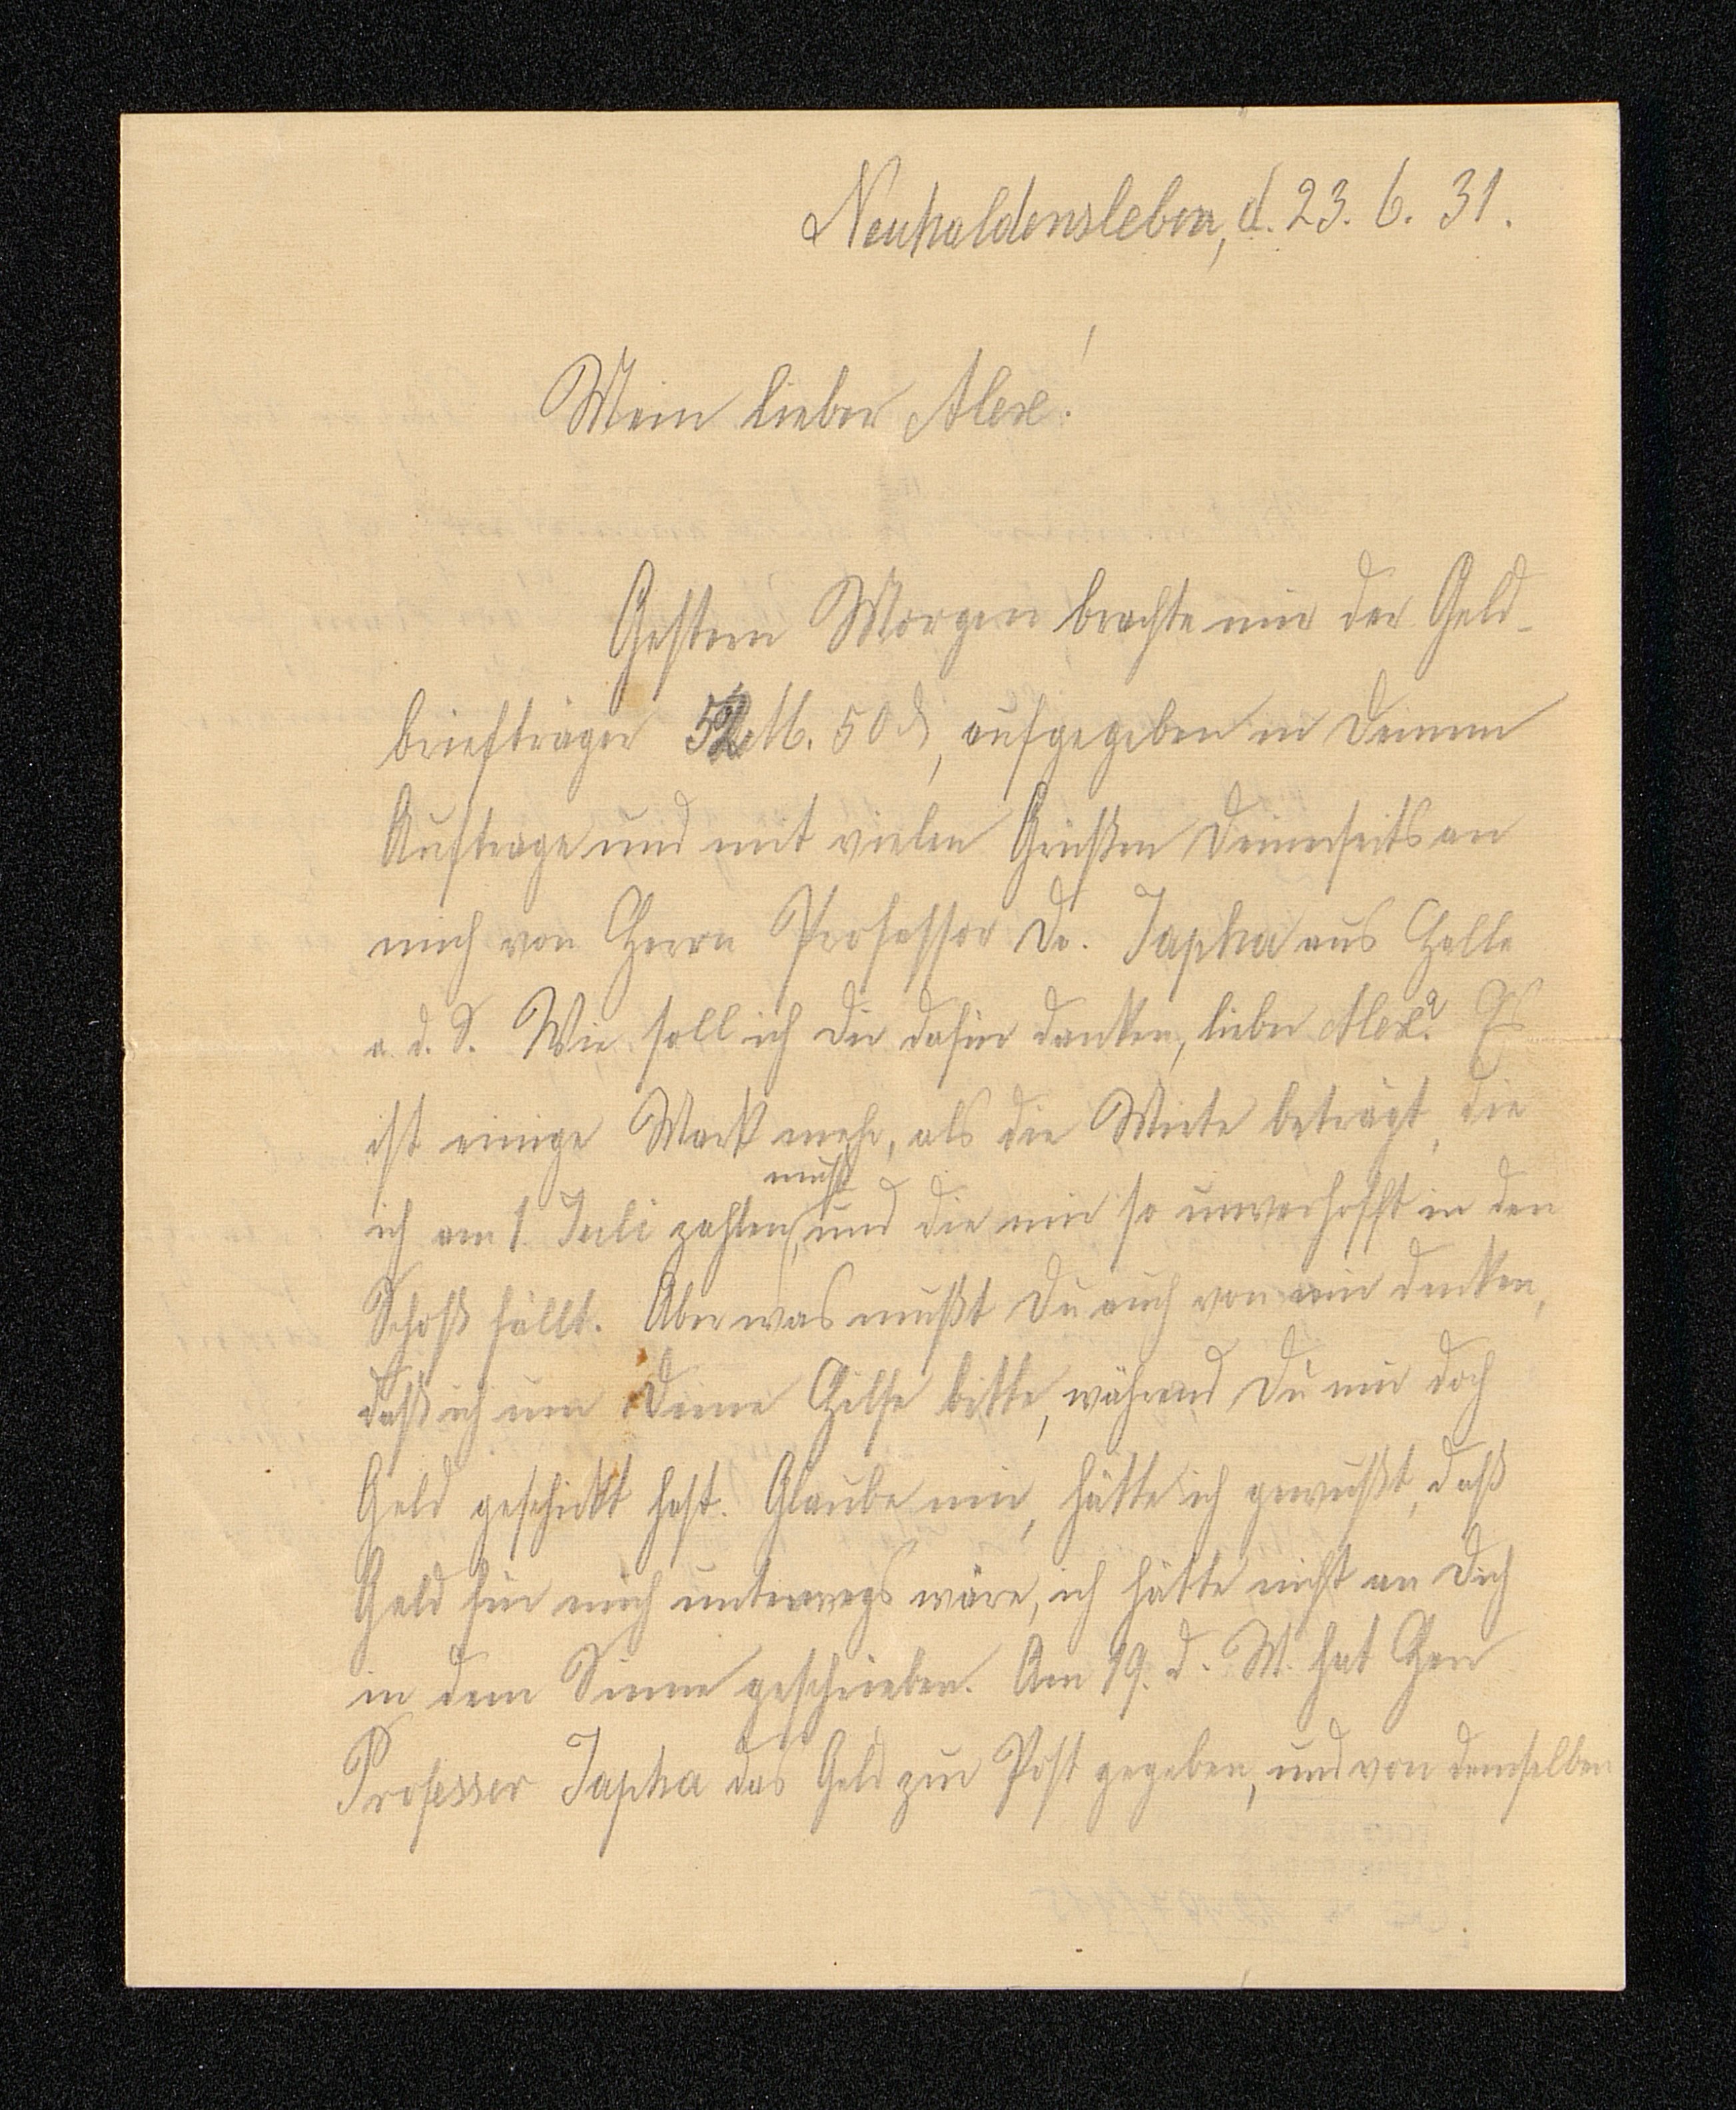 Neuhaldensleben, d. 23. 6. 31.
Mein lieber Alex!
Gestern Morgen brachte mir der Geld-
briefträger 52 M. 50 ₰, aufgegeben in Deinem
Auftrage und mit vielen Grüßen Deinerseits an
mich von Herrn Professor Dr. Japha aus Halle
a. d. S. Wie soll ich Dir dafür danken, lieber Alex? Es
ist einige Mark mehr, als die Miete beträgt, die
ich am 1. Juli zahlen muß, und die mir so unverhofft in den
Schoß fällt. Aber was mußt Du auch von mir denken,
daß ich um Deine Hilfe bitte, während Du mir doch
Geld geschickt hast. Glaube mir, hätte ich gewußt, daß
Geld für mich unterwegs wäre, ich hätte nicht an Dich
in dem Sinne geschrieben. Am 19. d. M. hat Herr
Professor Japha das Geld zur Post gegeben, und von demselben